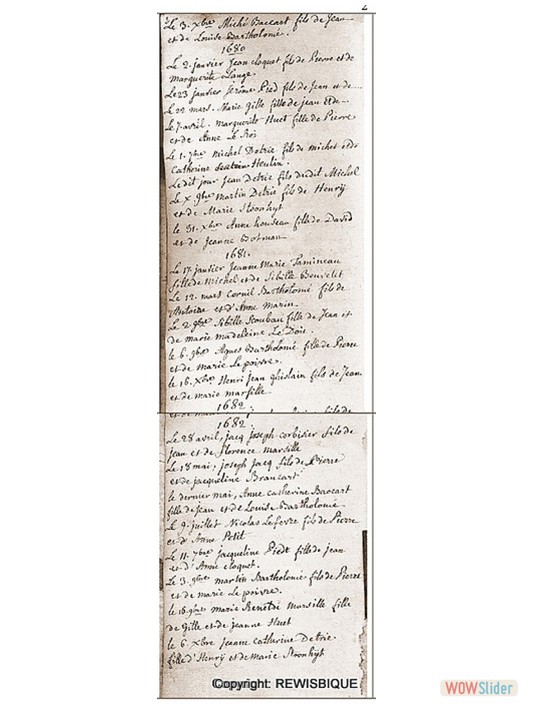 2
Le 3. xbre Michel Baccart fils de Jean
et de Louise Bartholomé.
1680
Le 2. janvier Jean cloquet fils de Pierre et de
Marguerite Lange.
Le 23 janvier jerome Pied fils de Jean et de...
Le 22 mars. Marie Gille fille de jean et de...
Le 7 avril. marguerite Huet fille de Pierre
et de Anne Le Roi
Le 1. 7bre Michel Detrie fils de michel et de
Catherine Heulin.
Le dit jour Jean Detrie fils dudit Michel
Le x 9bre Martin Detrie fils de Henrÿ
et de Marie Stoonhyt
le 31. xbre Anne houseau fille de David
et de Jeanne
1681.
Le 17. janvier Jeanne Marie Tamineau
fille de Michel et de Sibille Bouvelit
Le 12. mars Cornil Bartholomé fils de
Antoine et d'Anne Marin.
Le 2. 9bre Sibille fille de Jean et
de marie madeleine Le Dois.
le 6. 9bre Agnes Bartholomé fille de Pierre
et de marie Le poivre.
le 16. xbre Henri Jean Ghislain fils de Jean
et de marie marsille
1682
1682
Le 28 avril, jacq joseph corbisier fils de
jean et de florence marsille
Le 18 mai, joseph Jacq fils de Pierre
et de jacqueline Brancart
le dernier mai, Anne catherine Baccart
fille de Jean et de Louise Bartholomé
Le 9. juillet Nicolas Lefevre fils de Pierre
et d'Anne Petit
Le 11. 7bre jacqueline Piedt fille de jean
et d'Anne cloquet.
Le 3. 9bre martin Bartholomé fils de Pierre
et de marie Le poivre.
le 16 9bre marie Benetde marsille fille
de Gille et de jeanne Huet
le 6 xbre Jeanne catherine Detrie
fille d'Henrÿ et de marie Stoonhyt
Copyright: REWISBIQUE
WOWSlider